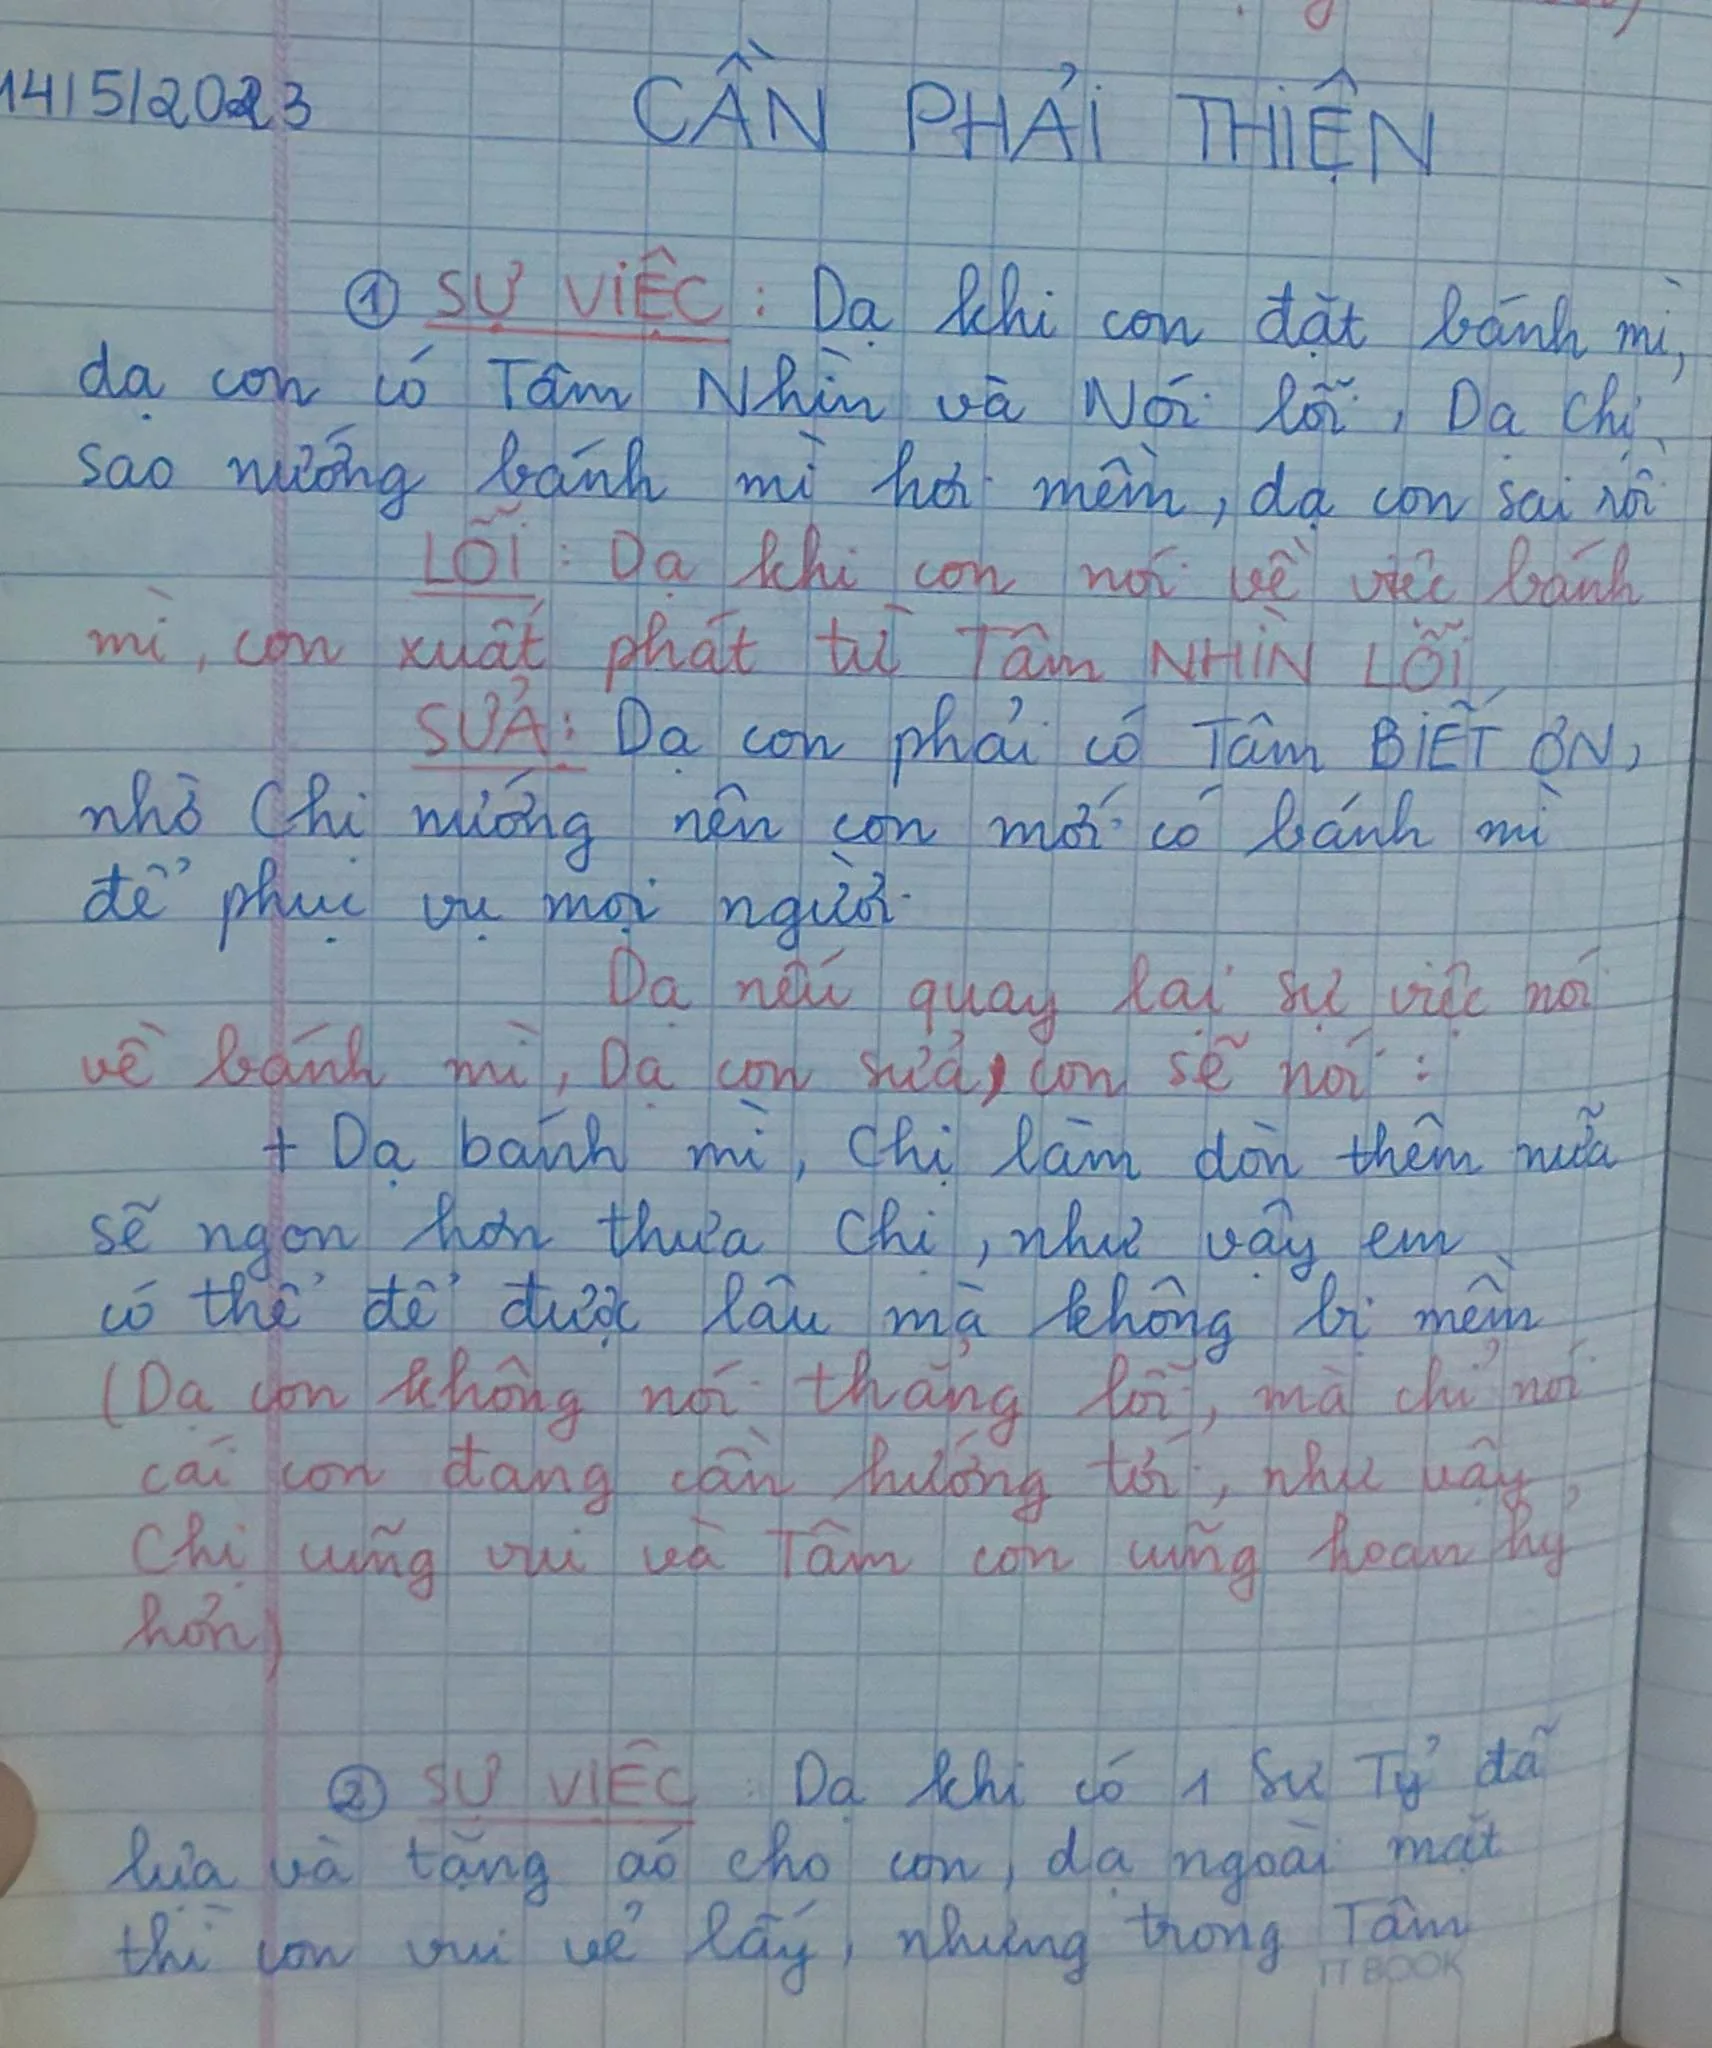 14/5/2023 CẦN PHẢI THIỆN
① SỰ VIỆC : Dạ khi con đặt bánh mì,
dạ con có Tâm Nhìn và Nói lỗi, Dạ Chị
sao nướng bánh mì hơi mềm, dạ con sai rồi
LỖI : Dạ khi con nói về việc bánh
mì, con xuất phát từ Tâm NHÌN LỖI
SỬA : Dạ con phải có Tâm BIẾT ƠN,
nhờ Chị nướng nên con mới có bánh mì
để phục vụ mọi người.
Dạ nếu quay lại sự việc nói
về bánh mì, Dạ con sửa, con sẽ nói :
+ Dạ bánh mì, Chị làm dòn thêm nữa
sẽ ngon hơn thưa Chị, như vậy em
có thể để được lâu mà không bị mềm
(Dạ con không nói thẳng lỗi, mà chỉ nói
cái con đang cần hướng tới, như vậy,
Chị cũng vui và Tâm con cũng hoan hỷ
hơn)
② SỰ VIỆC : Dạ khi có 1 Sư Tỷ đã
lựa và tặng áo cho con, dạ ngoài mặt
thì con vui vẻ lấy, nhưng trong Tâm
IT BOOK